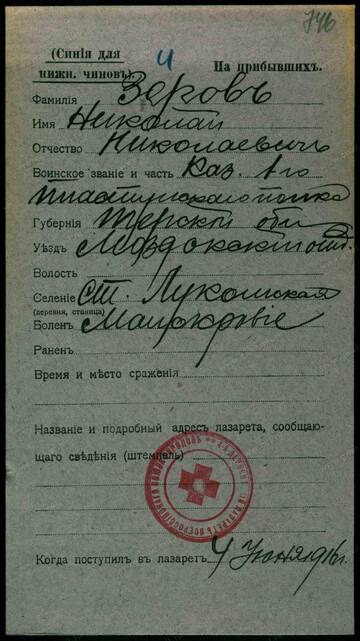 746
(Синія для
нижн. чиновъ).
4
На прибывшихъ.
Фамилія Зеровъ
Имя Николай
Отчество Николаевичъ
Воинское званіе и часть Каз. 1го
Пластунскаго полка
Губернія Терской обл.
Уѣздъ Моздокскій отд.
Волость
Селеніе ст. Лукомская
(деревня, станица)
Боленъ Малокровіе
Раненъ
Время и мѣсто сраженія
Названіе и подробный адресъ лазарета, сообщаю-
щаго свѣдѣнія (штемпель)
Когда поступилъ въ лазаретъ 4 Іюня 916 г.